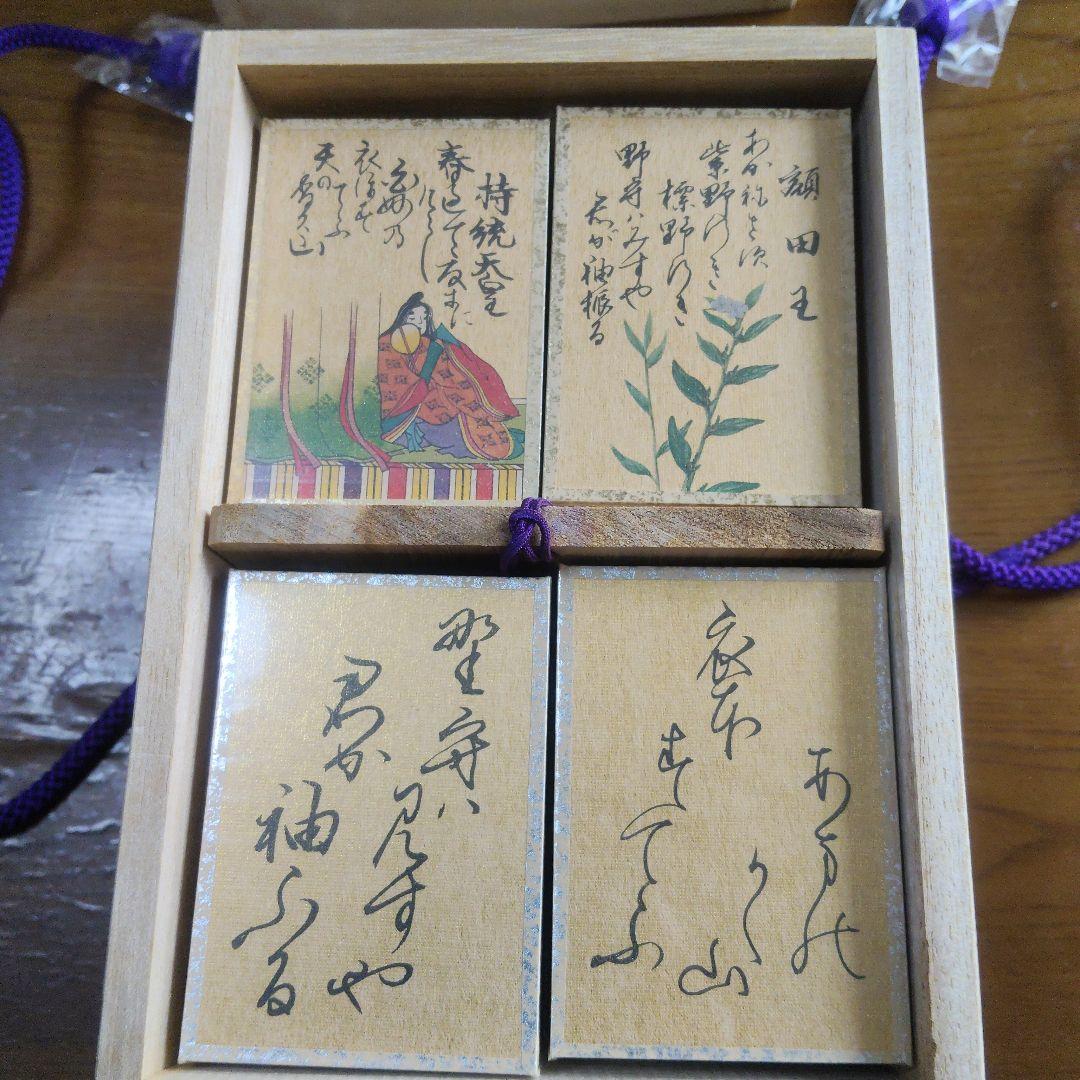 額田王
あかねさす
紫野ゆき
標野ゆき
野守ハみすや
君が袖振る
持統天皇
春過て夏きに
けらし
白妙乃
衣ほす
てふ
天の
香久山
衣ほ
すてふ
あまの
かく山
野守ハ
見すや
君か
袖ふる